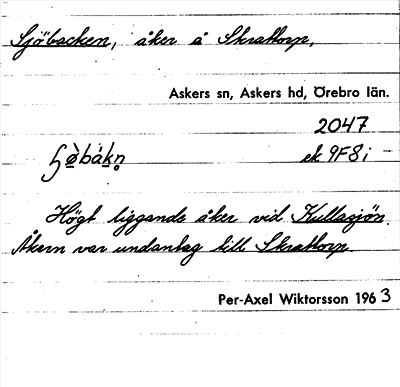 Sjöbacken, åker å Skrattorp,
Askers sn, Askers hd, Örebro län.
2047
ek 9F8i
Högt liggande åker vid Kullasjön.
Åkern var undantag till Skrattorp.
Per-Axel Wiktorsson 1963